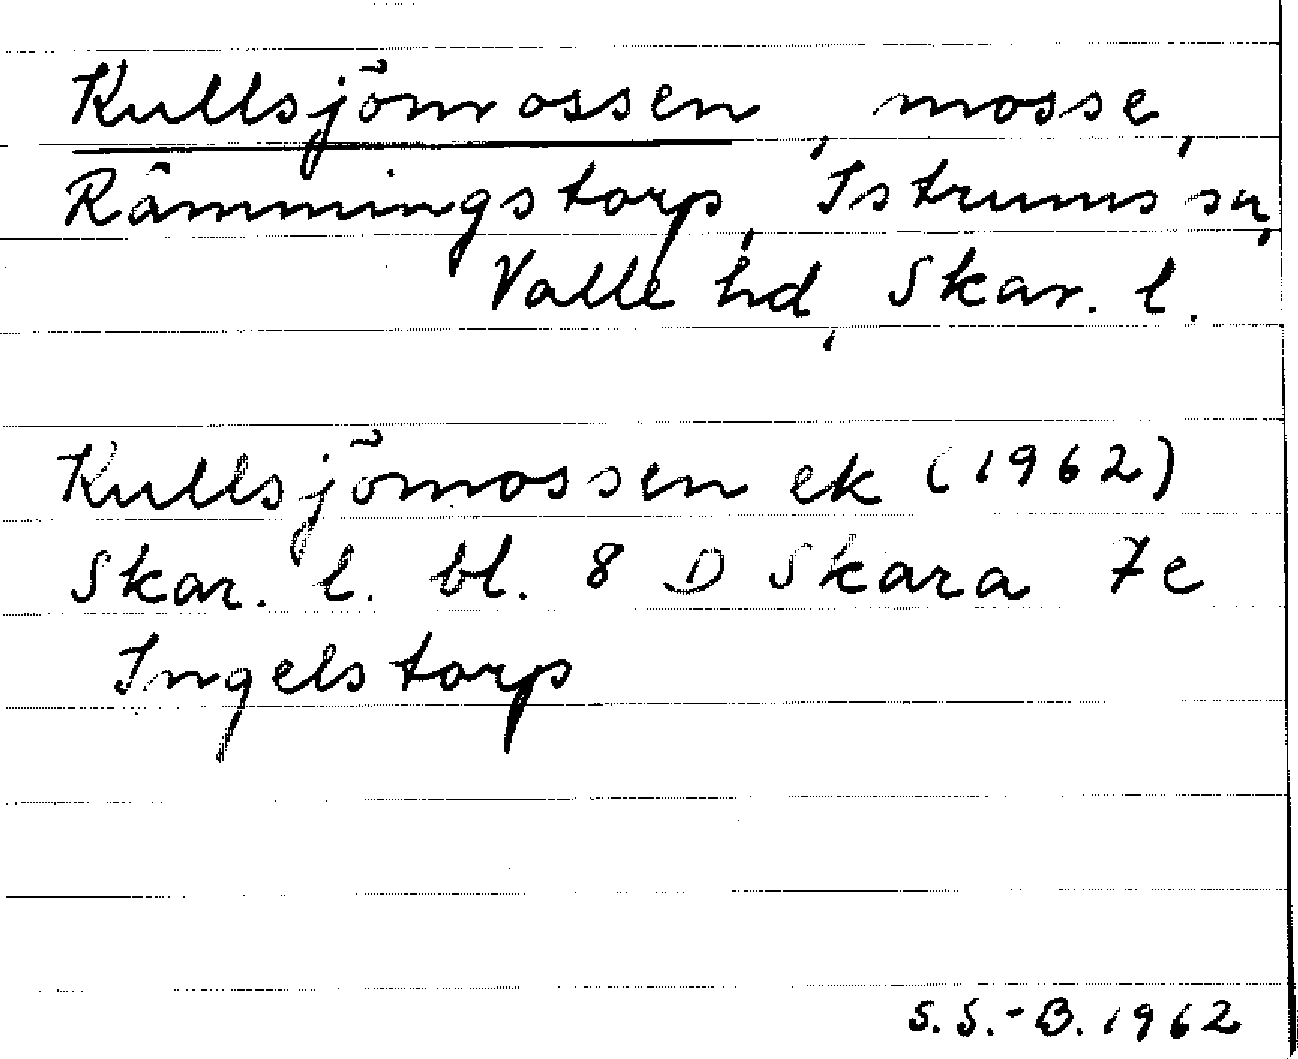 Kullsjömossen, mosse,
Rämmingstorp, Istrums sn,
Valle hd, Skar. l.
Kullsjömossen ek (1962)
Skar. l. bl. 8 D Skara 7e
Ingelstorp
S.S.-B. 1962